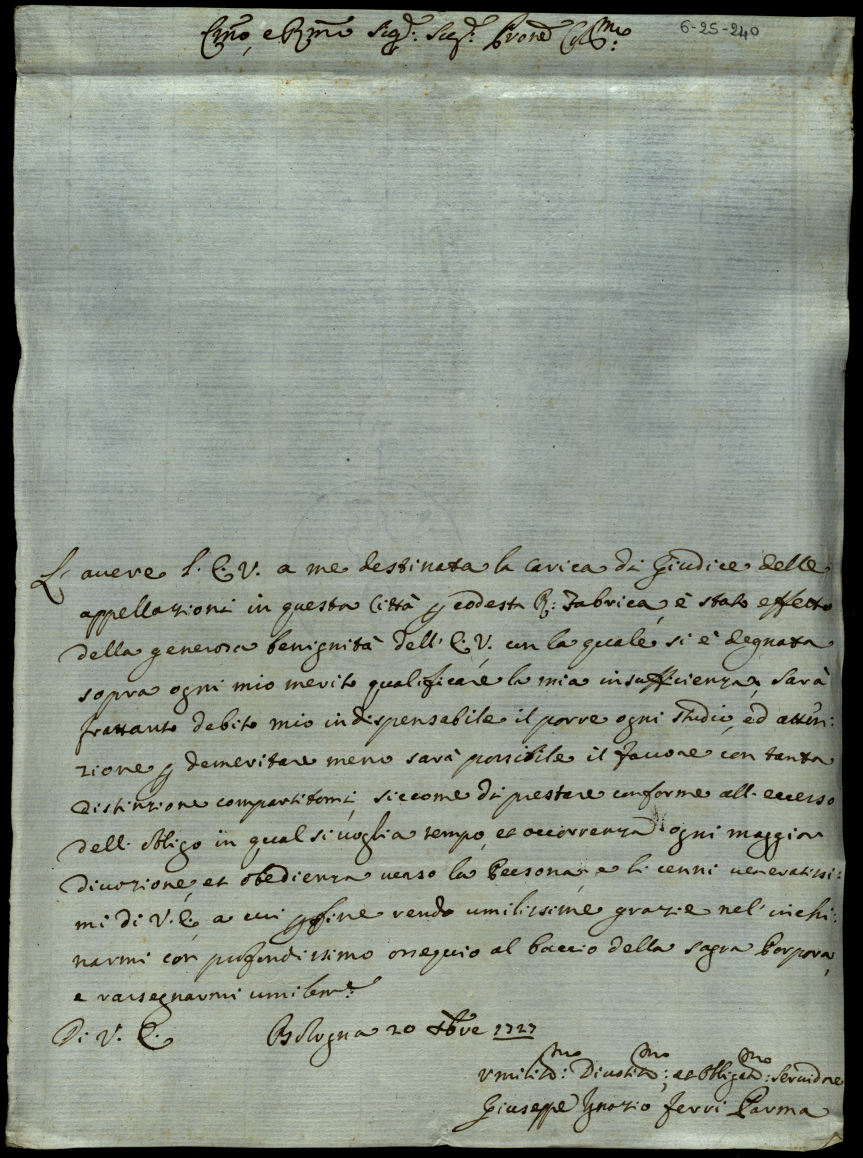 Emo, e Rmo Sigr: Sigr: Prone Colmo:
6-25-240
L'avere l'E.V. a me destinata la carica di Giudice delle
appellazioni in questa Città p codesta R: Fabrica, è stato effetto
della generosa benignità dell'E.V. con la quale si è degnata
sopra ogni mio merito qualificare la mia insufficienza, sarà
frattanto debito mio indispensabile il porre ogni studio, ed atten:
zione p demeritare meno sarà possibile il favore con tanta
distinzione compartitomi, siccome di prestare conforme all'eccesso
dell'obligo in qual si voglia tempo, et occorrenza ogni maggior
divozione, et obedienza verso la Persona e li cenni veneratissi:
mi di V.E. a cui p fine rendo umilissime grazie nel' inchi:
narmi con profondissimo ossequio al baccio della sagra Porpora,
e rassegnarmi umilemte
Di V. E. Bologna 20 Xbre 1727
Umilmo: Divotmo: et Obligmo: Servidore
Giuseppe Ignazio Ferri Parma